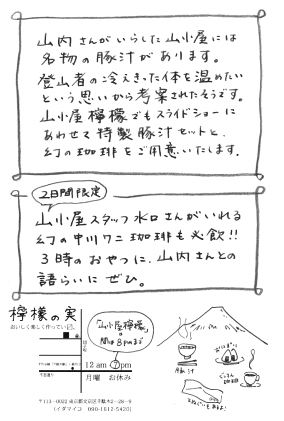 山内さんがいらした山小屋には
名物の豚汁があります。
登山者の冷えきった体を温めたい
という思いから考案されたそうです。
山小屋檸檬でもスライドショーに
あわせて特製豚汁セットと、
幻の珈琲をご用意いたします。
2日間限定
山小屋スタッフ水口さんがいれる
幻の中川ワニ珈琲も必飲!!
3時のおやつに、山内さんとの
語らいにぜひ。
檸檬の実
おいしく楽しく作ってい
12am 7pm
月曜 お休み
「山小屋檸檬」の
間は8pmまで
豚汁
おにぎり
珈琲
てぬぐいもあるよ!
〒113-0022 東京都文京区千駄木2-28-9
(イダマイコ 090-1612-5420)